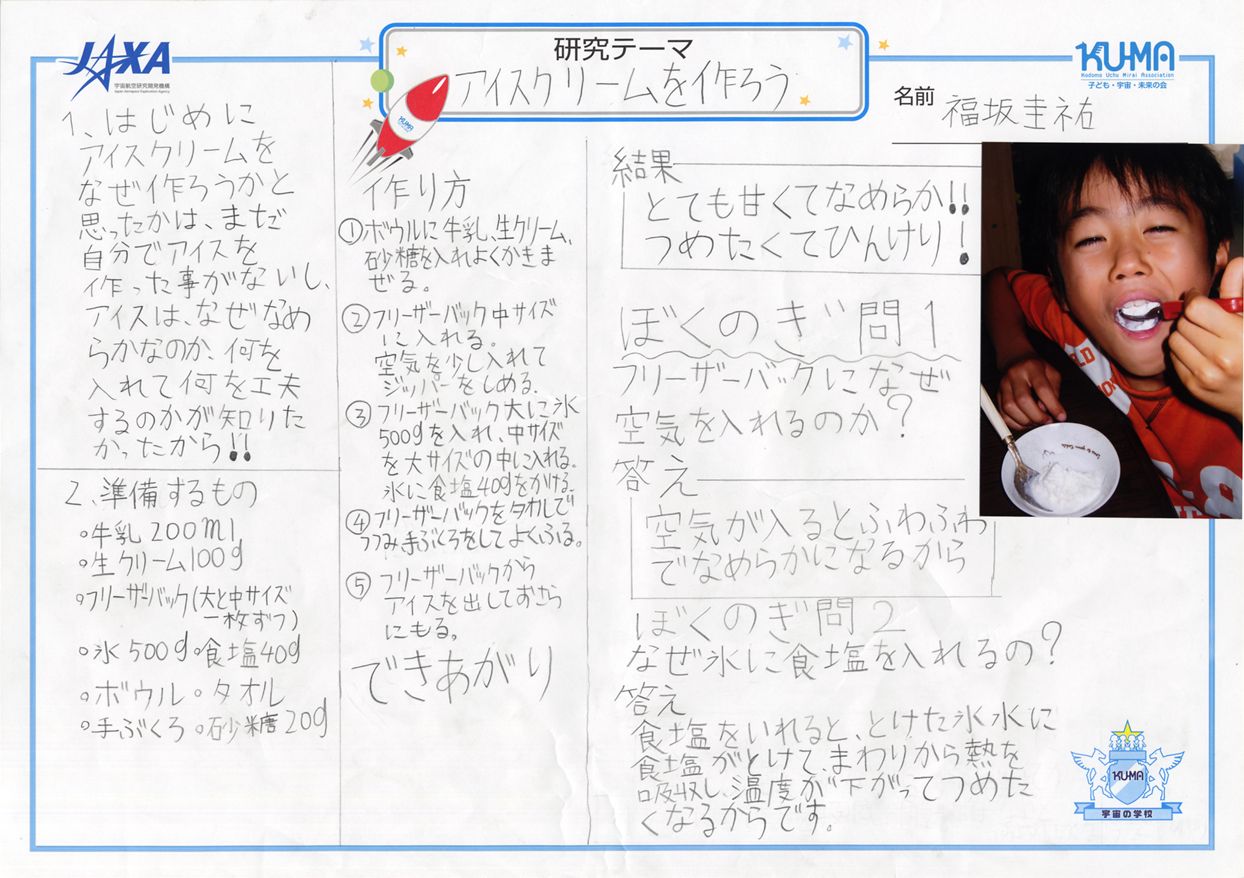 JAXA
宇宙航空研究開発機構
Japan Aerospace Exploration Agency
研究テーマ
アイスクリームを作ろう
KUMA
KUMA
Kodomo Uchu Mirai Association
子ども・宇宙・未来の会
名前 福坂圭祐
1、はじめに
アイスクリームを
なぜ作ろうかと
思ったかは、まだ
自分でアイスを
作った事がないし、
アイスは、なぜなめ
らかなのか、何を
入れて何を工夫
するのかが知りた
かったから!!
2、準備するもの
・牛乳200ml
・生クリーム100g
・フリーザーバック(大と中サイズ
一枚ずつ)
・氷500g・食塩40g
・ボウル・タオル
・手ぶくろ・砂糖20g
作り方
①ボウルに牛乳、生クリーム、
砂糖を入れよくかきま
ぜる。
②フリーザーバック中サイズ
に入れる。
空気を少し入れて
ジッパーをしめる。
③フリーザーバック大に氷
500gを入れ、中サイズ
を大サイズの中に入れる。
氷に食塩40gをかける。
④フリーザーバックをタオルで
つつみ手ぶくろをしてよくふる。
⑤フリーザーバックから
アイスを出しておさら
にもる。
できあがり
結果
とても甘くてなめらか!!
つめたくてひんけり!
ぼくのぎ問1
フリーザーバックになぜ
空気を入れるのか?
答え
空気が入るとふわふわ
でなめらかになるから
ぼくのぎ問2
なぜ氷に食塩を入れるの?
答え
食塩をいれると、とけた氷水に
食塩がとけて、まわりから熱を
吸収し、温度が下がってつめた
くなるからです。
KUMA
宇宙の学校